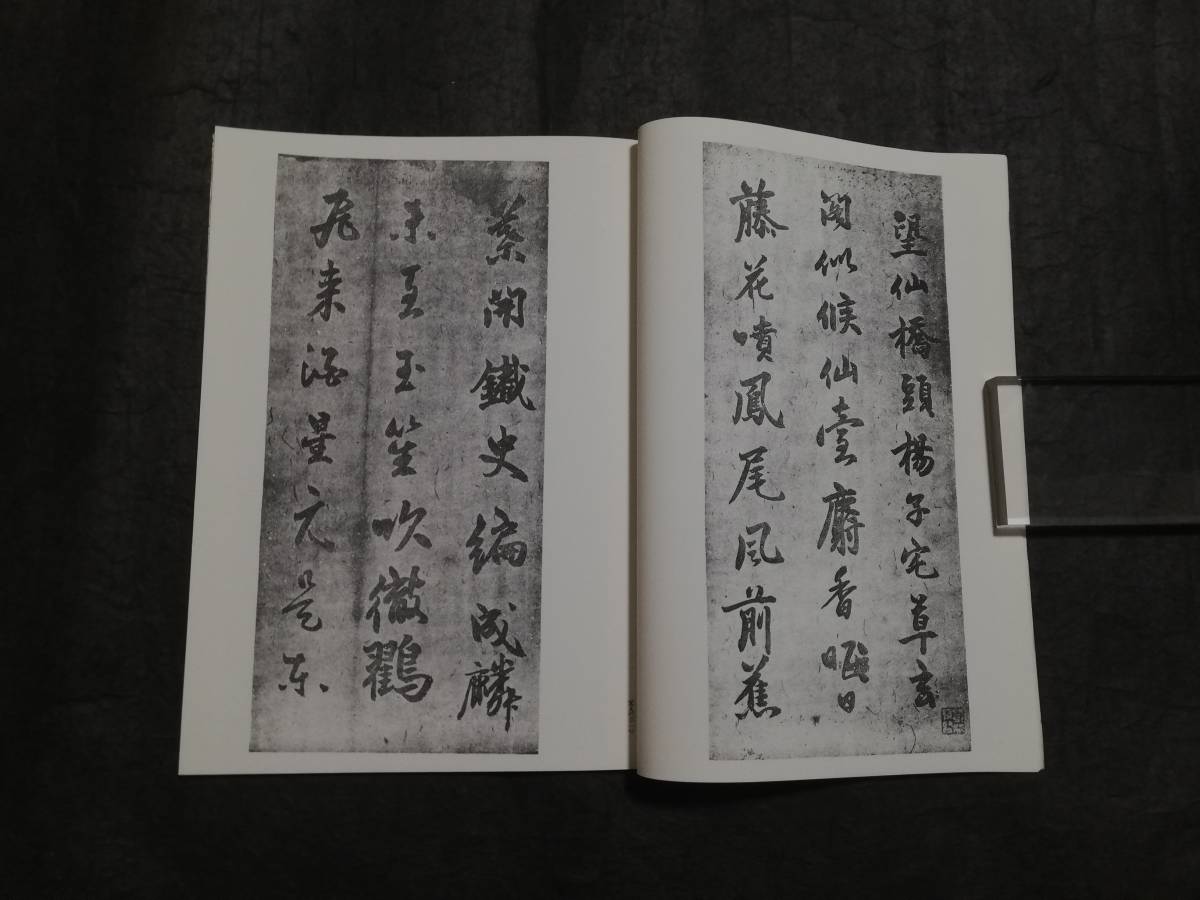 望仙橋頭楊子宅草玄
閣似候仙臺麝香眠日
藤花噴鳳尾風前蕉
葉開鐵史編成麟
未至玉笙吹徹鶴
飛来酒星元是東